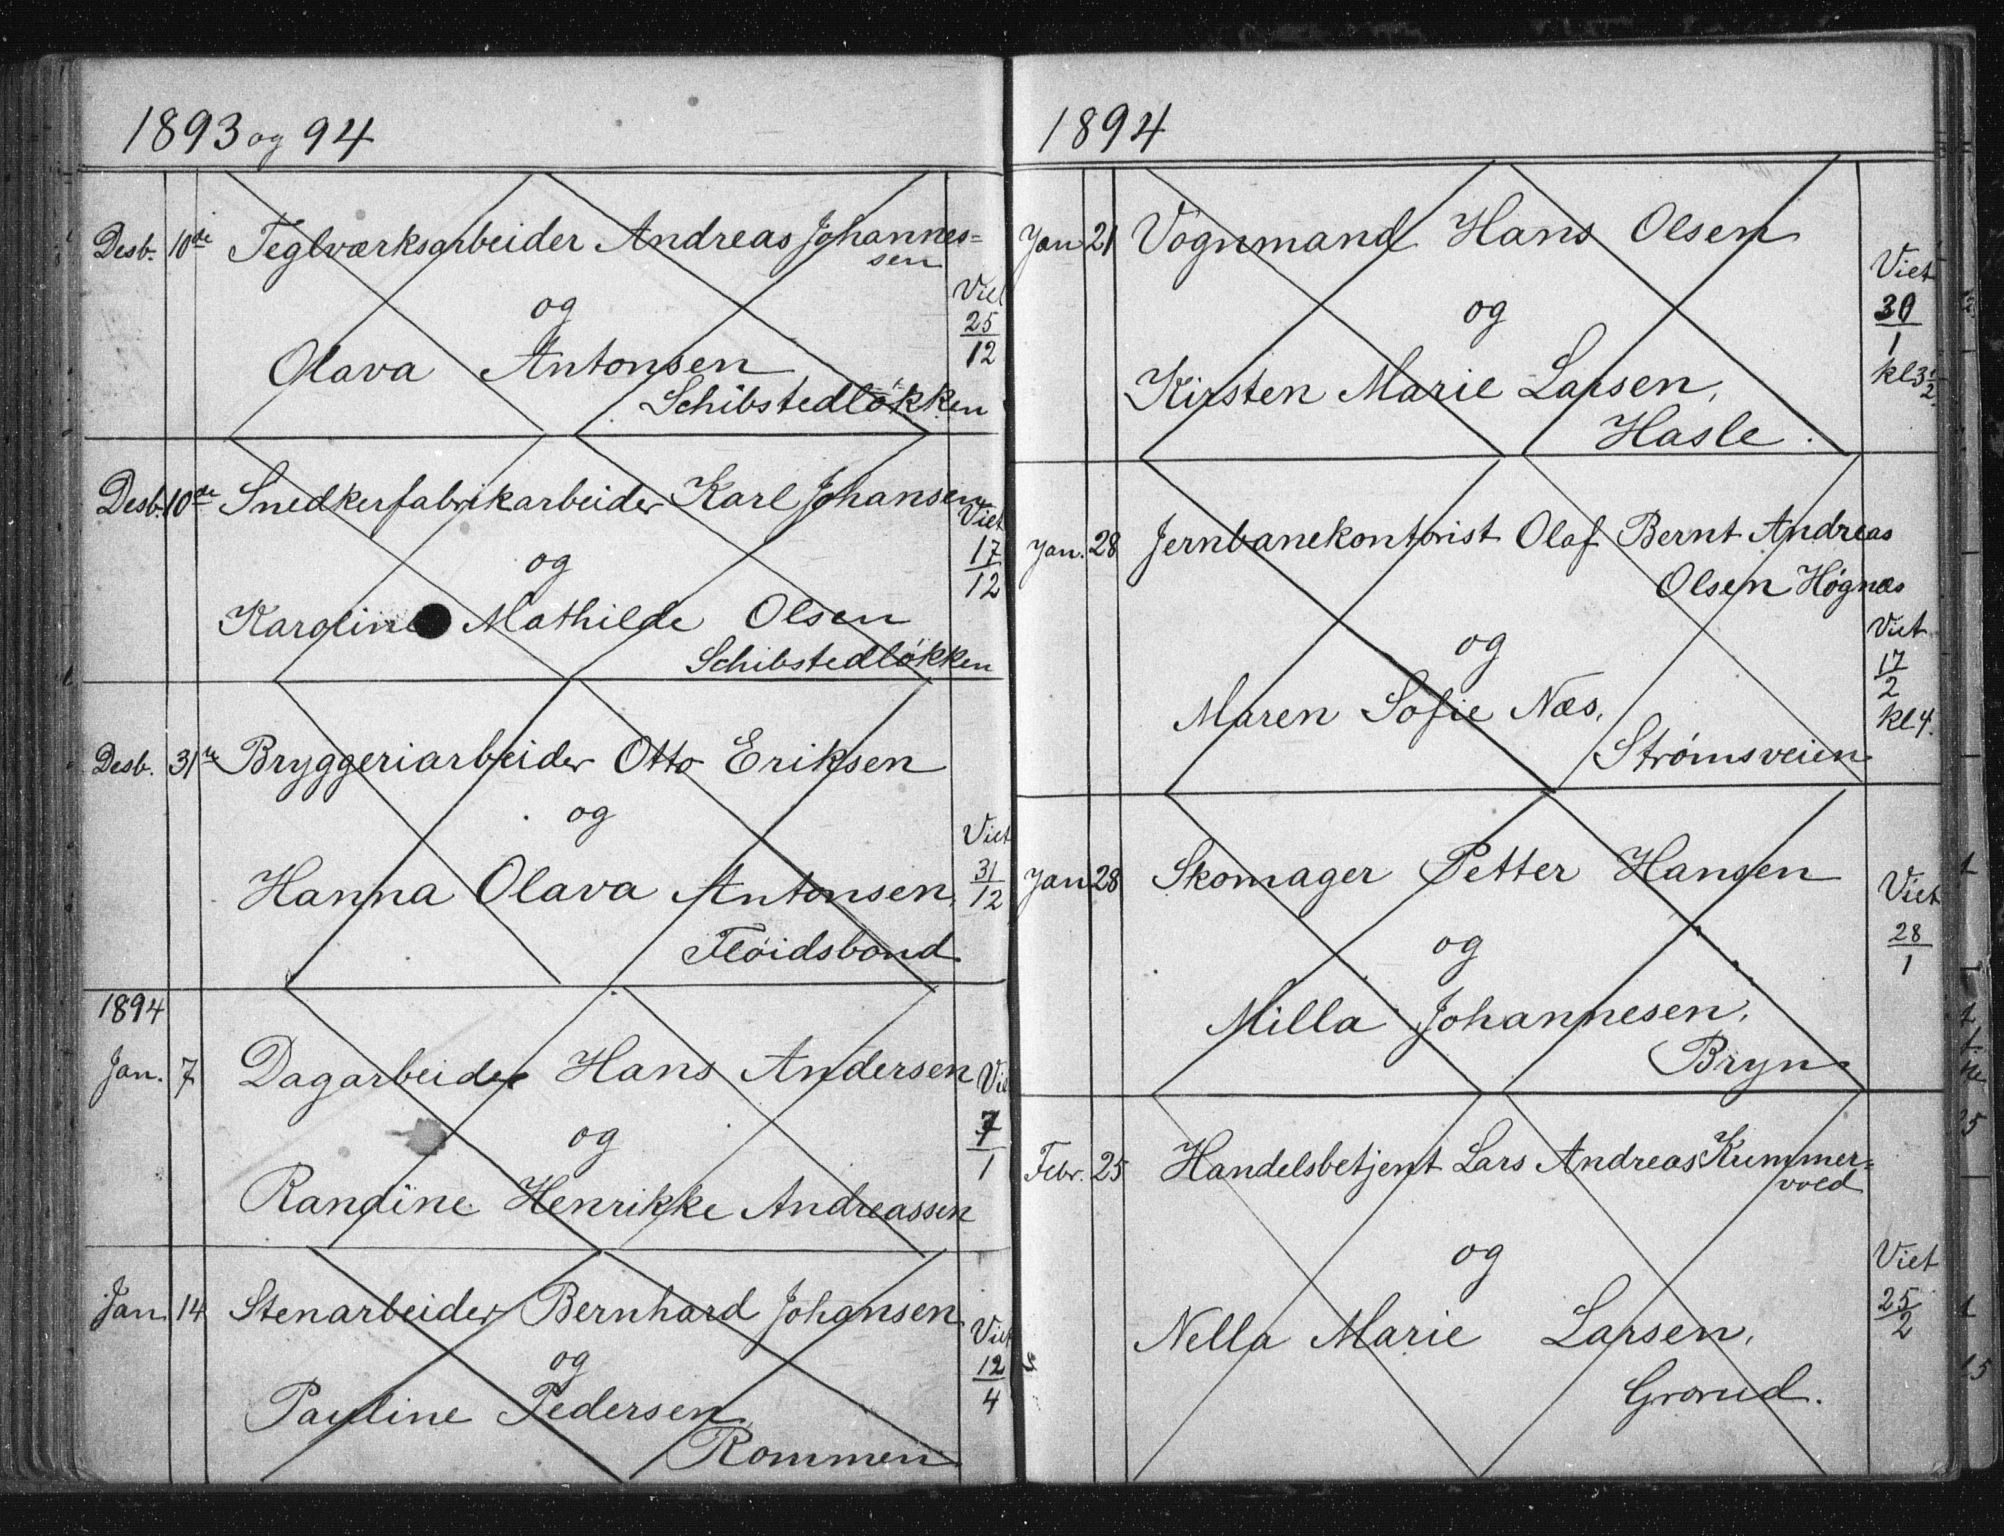 1893 og 94
Desb. 10de Teglværksarbeider Andreas Johannes=
sen
og
Olava Antonsen
Schibstedløkken
Viet
25
12
Desb. 10de Snedkerfabrikarbeider Karl Johansen
og
Karoline Mathilde Olsen
Schibstedløkken
Viet
17
12
Desb. 31te Bryggeriarbeider Otto Eriksen
og
Hanna Olava Antonsen,
Fløidsbond
Viet
31
12
1894
Jan. 7 Dagarbeider Hans Andersen
og
Randine Henrikke Andreassen
Viet
7
1
Jan. 14 Stenarbeider Bernhard Johansen
og
Pauline Pedersen,
Rommen
Viet
12
4
1894
Jan 21 Vognmand Hans Olsen
og
Kirsten Marie Larsen,
Hasle.
Viet
30
1
kl 3 1/2.
Jan. 28 Jernbanekontorist Olaf Bernt Andreas
Olsen Høgnæs
og
Maren Sofie Næs,
Strømsveien
Viet
17
2
kl 4.
Jan 28 Skomager Petter Hansen
og
Milla Johannesen,
Bryn
Viet
28
1
Febr. 25 Handelsbetjent Lars Andreas Kummer=
vold
og
Nella Marie Larsen,
Grorud.
Viet
25
2